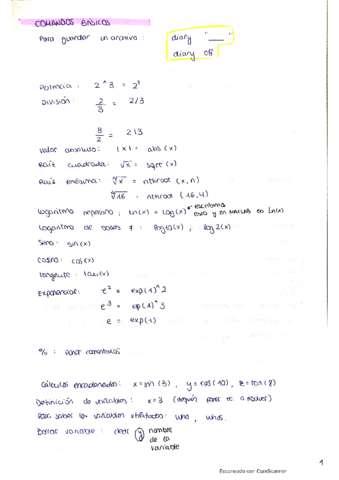 COMANDOS BÁSICOS
Para guardar un archivo: diary "____"
diary off
Potencia: 2^3 = 2³
División: 2/3 = 2/3
3/2 = 2\3
Valor absoluto: |x| = abs(x)
Raíz cuadrada: √x = sqrt(x)
Raíz enésima: ⁿ√x = nthroot(x,n)
⁴√16 = nthroot(16,4)
logaritmo neperiano: ln(x) = log(x) * escribimos esto y no ln(x)
logaritmo de bases ≠: log10(x); log2(x)
Seno: sin(x)
Coseno: cos(x)
tangente: tan(x)
Exponencial: e² = exp(1)^2
e³ = exp(1)^3
e = exp(1)
% : poner comentarios
Cálculos encadenados: x=sin(3), y=cos(10), z=tan(8)
Definición de variables: x=3 (después
Para saber las variables utilizadas: who, whos.
Borrar variable: clear (y) nombre de la variable
1
Escaneado con CamScanner